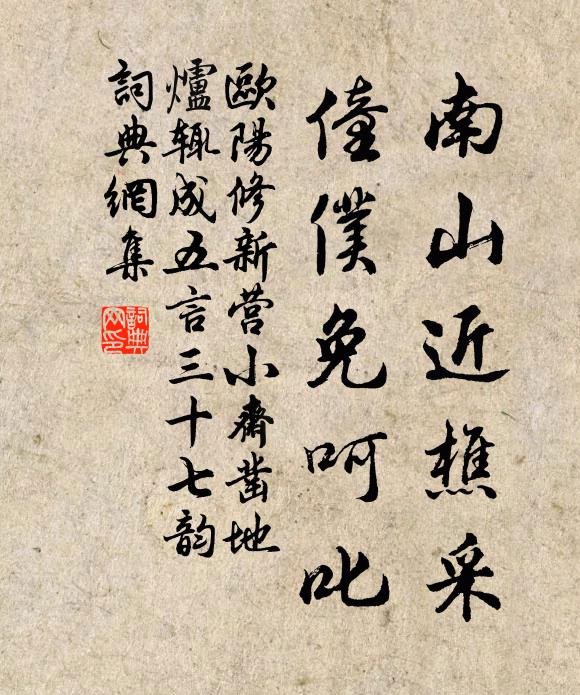 南山近樵采
僮僕免呵叱
歐陽修新營小齋凿地
爐輒成五言三十七韵
詞典網集
詞典網印